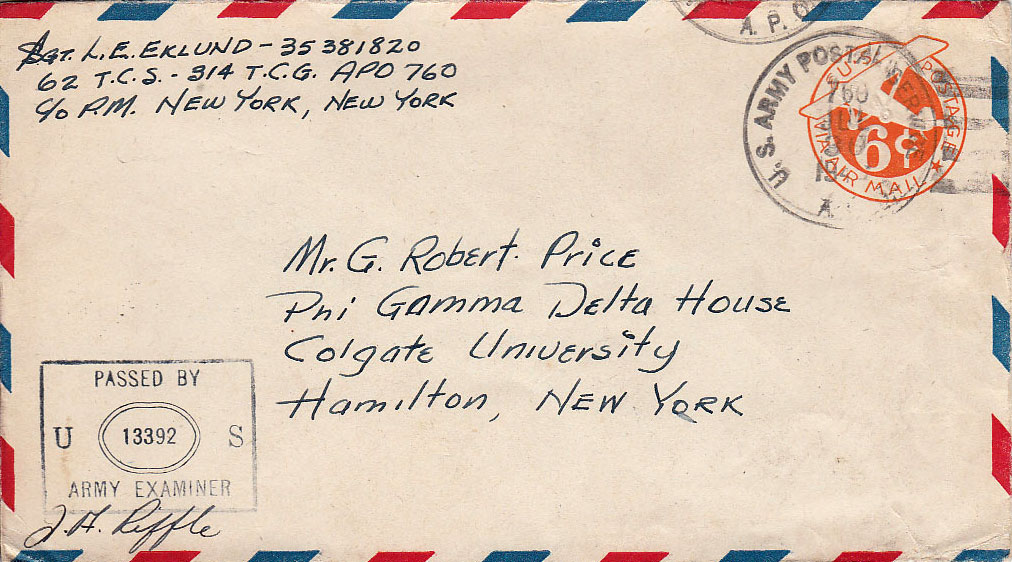 Sgt. L. E. EKLUND - 35381820
62 T.C.S. - 314 T.C.G. APO 760
c/o P.M. NEW YORK, NEW YORK
A. P. O.
U. S. ARMY POSTAL SERVICE
760
30
U.S. POSTAGE
6¢
VIA AIR MAIL
Mr. G. Robert Price
Phi Gamma Delta House
Colgate University
Hamilton, NEW YORK
PASSED BY
U 13392 S
ARMY EXAMINER
J. H. Riffle